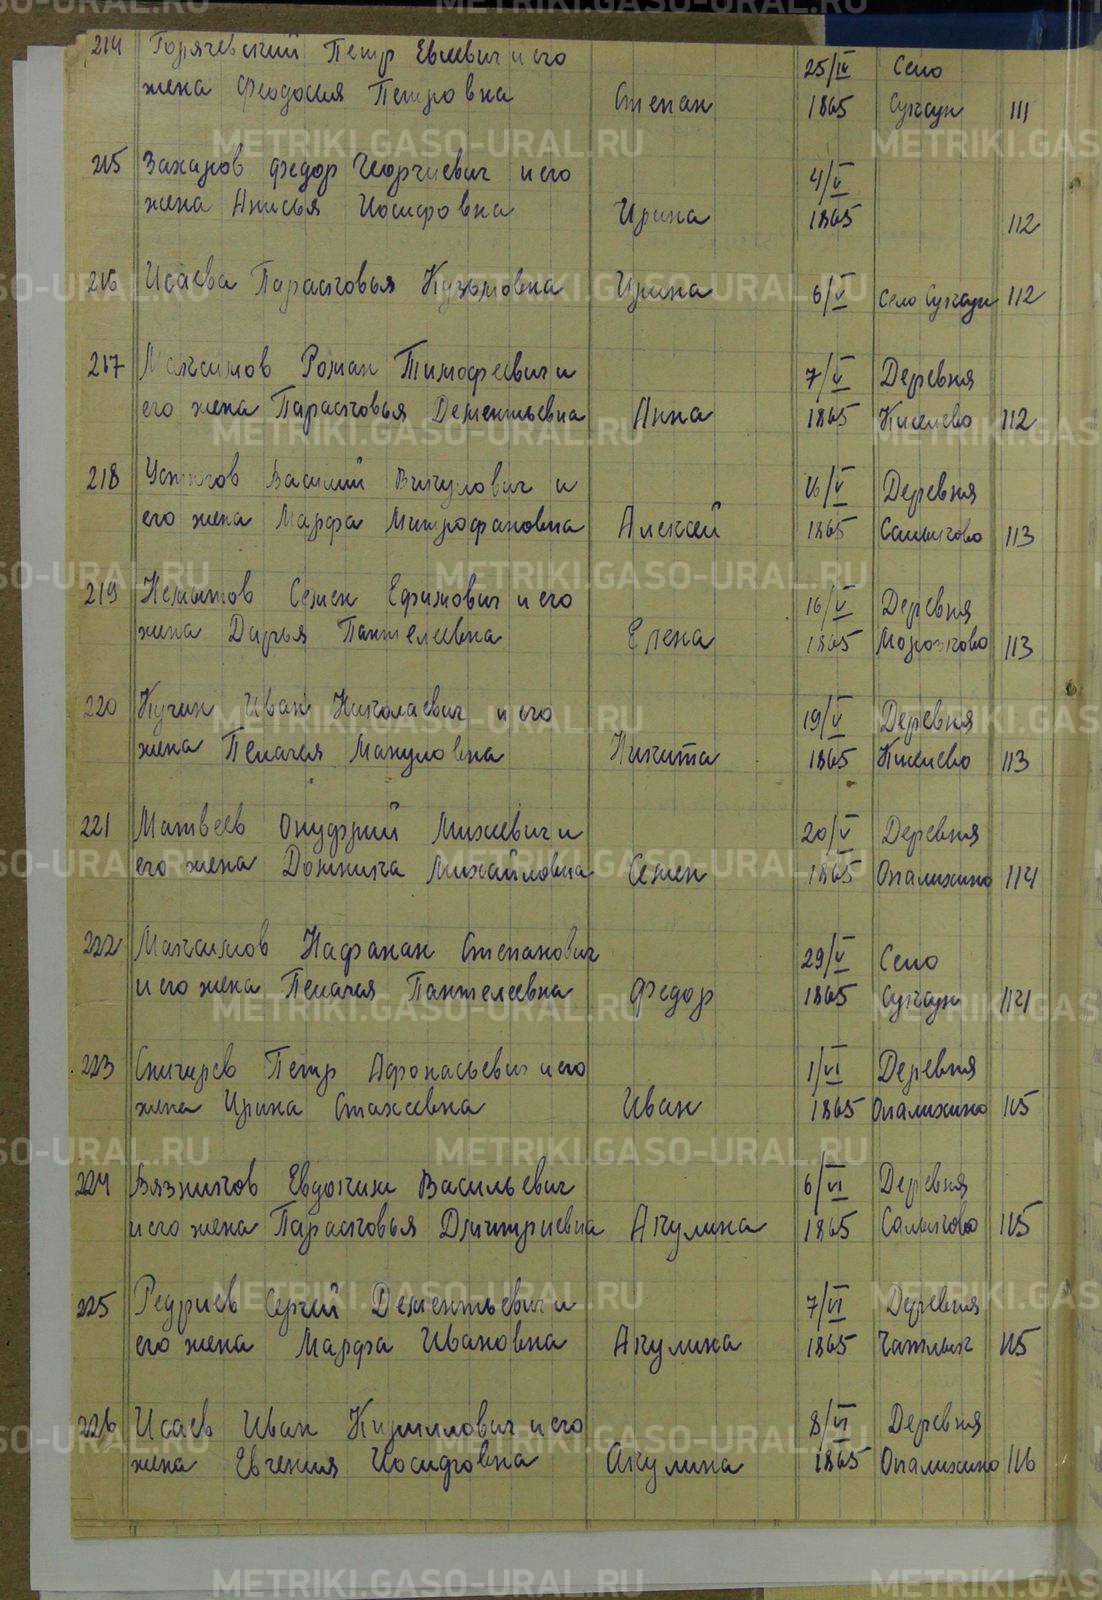 214 Горячевский Петр Евлевич и его 25/IV Село
жена Феодосия Петровна Степан 1865 Сугояк 111
215 Захаров Федор Георгиевич и его 4/V
жена Анисья Иосифовна Ирина 1865 112
216 Исаева Парасковья Кузьмовна Ирина 6/V Село Сугояк 112
217 Максимов Роман Тимофеевич и 7/V Деревня
его жена Парасковья Дементьевна Анна 1865 Киселево 112
218 Устюгов Василий Викулович и 16/V Деревня
его жена Марфа Митрофановна Алексей 1865 113
219 Семен Ефимович и его 16/V Деревня
жена Дарья Пантелеевна Елена 1865 Морозково 113
220 Кучин Иван Николаевич и его 19/V Деревня
жена Пелагея Мануловна Никита 1865 Киселево 113
221 Матвеев Онуфрий Михеевич и 20/V Деревня
его жена Домника Михайловна Семен 1865 Опалихино 114
222 Максимов Нафанаи Степанович 29/V Село
и его жена Пелагея Пантелеевна Федор 1865 Сугояк 114
223 Снигирев Петр Афонасьевич и его 1/VI Деревня
жена Ирина Стахеевна Иван 1865 Опалихино 115
224 Вязников Евдоким Васильевич 6/VI Деревня
и его жена Парасковья Дмитриевна Акулина 1865 115
225 Сергей Дементьевич и 7/VI Деревня
его жена Марфа Ивановна Акулина 1865 115
226 Исаев Иван Кириллович и его 8/VI Деревня
жена Евгения Иосифовна Акулина 1865 Опалихино 116
METRIKI.GASO-URAL.RU